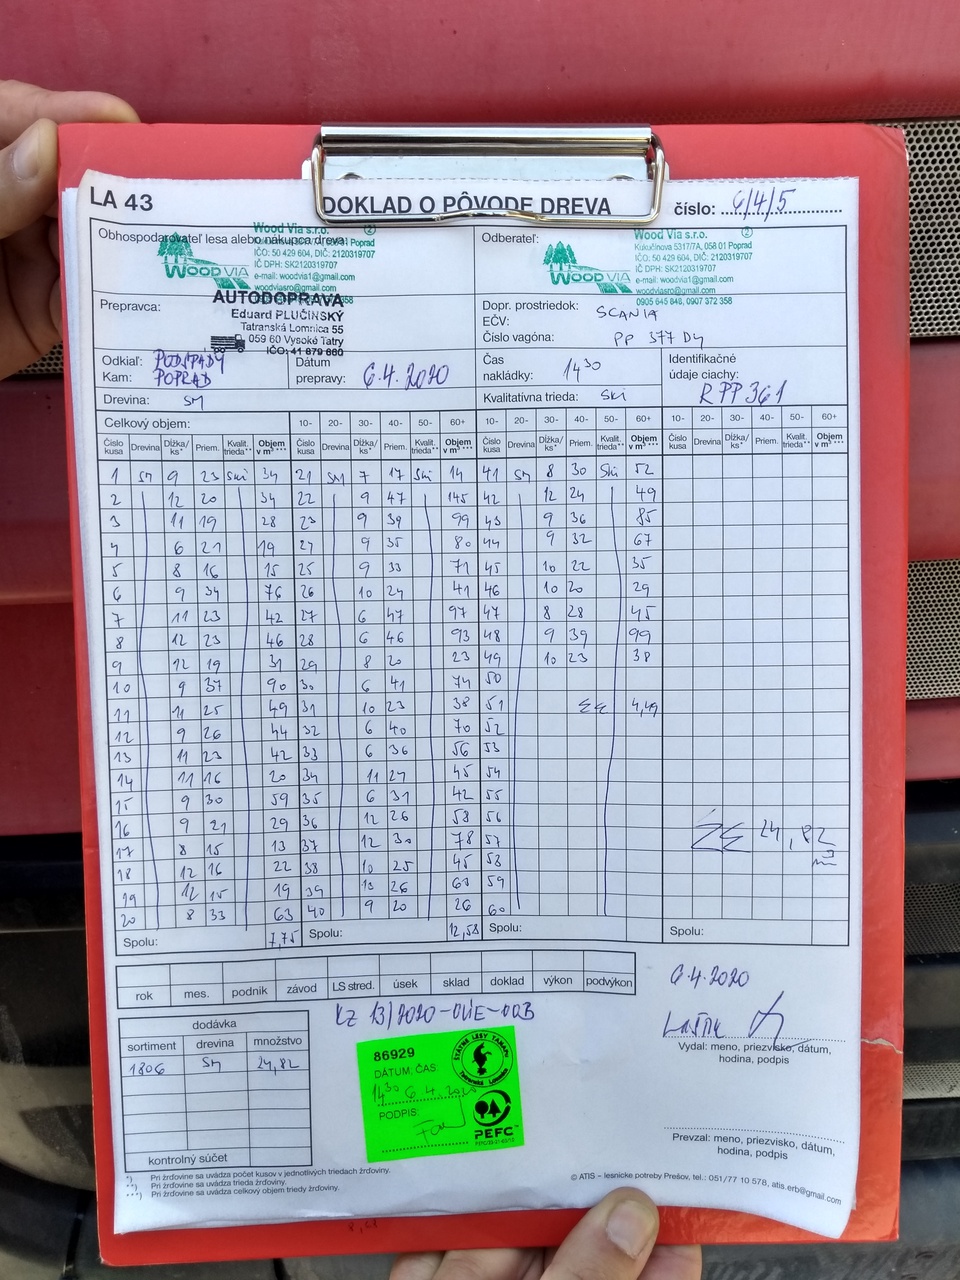 LA 43
DOKLAD O PÔVODE DREVA
číslo: 6/4/5
Obhospodarovateľ lesa alebo nákupca dreva:
Wood Via s.r.o. ②
Kukučínova 5317/7A, 058 01 Poprad
IČO: 50 429 604, DIČ: 2120319707
IČ DPH: SK2120319707
e-mail: woodvia1@gmail.com
woodviasro@gmail.com
WOOD VIA
Odberateľ:
Wood Via s.r.o. ②
Kukučínova 5317/7A, 058 01 Poprad
IČO: 50 429 604, DIČ: 2120319707
IČ DPH: SK2120319707
e-mail: woodvia1@gmail.com
woodviasro@gmail.com
0905 645 848, 0907 372 358
WOOD VIA
Prepravca:
AUTODOPRAVA
Eduard PLUČINSKÝ
Tatranská Lomnica 55
059 60 Vysoké Tatry
IČO: 41 879 660
Dopr. prostriedok: SCANIA
EČV:
Číslo vagóna: PP 377 DY
Odkiaľ: PODSPÁDY
Kam: POPRAD
Dátum prepravy: 6.4.2020
Čas nakládky: 14 30
Identifikačné údaje ciachy: RPP361
Drevina: SM
Kvalitatívna trieda: Ski
Celkový objem:
10- 20- 30- 40- 50- 60+
10- 20- 30- 40- 50- 60+
10- 20- 30- 40- 50- 60+
Číslo kusa Drevina Dĺžka/ ks* Priem. Kvalit. trieda** Objem v m³ ***
Číslo kusa Drevina Dĺžka/ ks* Priem. Kvalit. trieda** Objem v m³ ***
Číslo kusa Drevina Dĺžka/ ks* Priem. Kvalit. trieda** Objem v m³ ***
Číslo kusa Drevina Dĺžka/ ks* Priem. Kvalit. trieda** Objem v m³ ***
1 SM 9 23 Ski 34 21 SM 7 17 Ski 14 41 SM 8 30 Ski 52
2 12 20 34 22 9 47 145 42 12 24 49
3 11 19 28 23 9 39 99 43 9 36 85
4 6 21 19 24 9 35 80 44 9 32 67
5 8 16 15 25 9 33 71 45 10 22 35
6 9 34 76 26 10 24 41 46 10 20 29
7 11 23 42 27 6 47 97 47 8 28 45
8 12 23 46 28 6 46 93 48 9 39 99
9 12 19 31 29 8 20 23 49 10 23 38
10 9 37 90 30 6 41 74 50
11 11 25 49 31 10 23 38 51 ΣΣ 4,49
12 9 26 44 32 6 40 70 52
13 11 23 42 33 6 36 56 53
14 11 16 20 34 11 24 45 54
15 9 30 59 35 6 31 42 55
16 9 21 29 36 12 26 58 56
17 8 15 13 37 12 30 78 57
18 12 16 22 38 10 25 45 58
19 12 15 19 39 10 26 60 59
20 8 33 63 40 9 20 26 60
ΣΣ 24,82 m³
Spolu: 7,75 Spolu: 12,58 Spolu: Spolu:
rok mes. podnik závod LS stred. úsek sklad doklad výkon podvýkon
6.4.2020
Vydal: meno, priezvisko, dátum, hodina, podpis
dodávka
sortiment drevina množstvo
1806 SM 24,82
kontrolný súčet
86929
DÁTUM: ČAS:
14 30 6.4.2020
PODPIS:
ŠTÁTNE LESY TANAPU
Tatranská Lomnica
PEFC™
Prevzal: meno, priezvisko, dátum, hodina, podpis
*) Pri žrďovine sa uvádza počet kusov v jednotlivých triedach žrďoviny.
**) Pri žrďovine sa uvádza trieda žrďoviny.
***) Pri žrďovine sa uvádza celkový objem triedy žrďoviny.
© ATIS – lesnícke potreby Prešov, tel.: 051/77 10 578, atis.erb@gmail.com